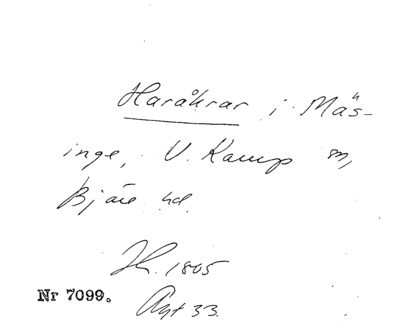 Haråkrar i Mäs-
inge, V. Karup sn,
Bjäre hd.
1805
Nr 7099.
Akt 33.